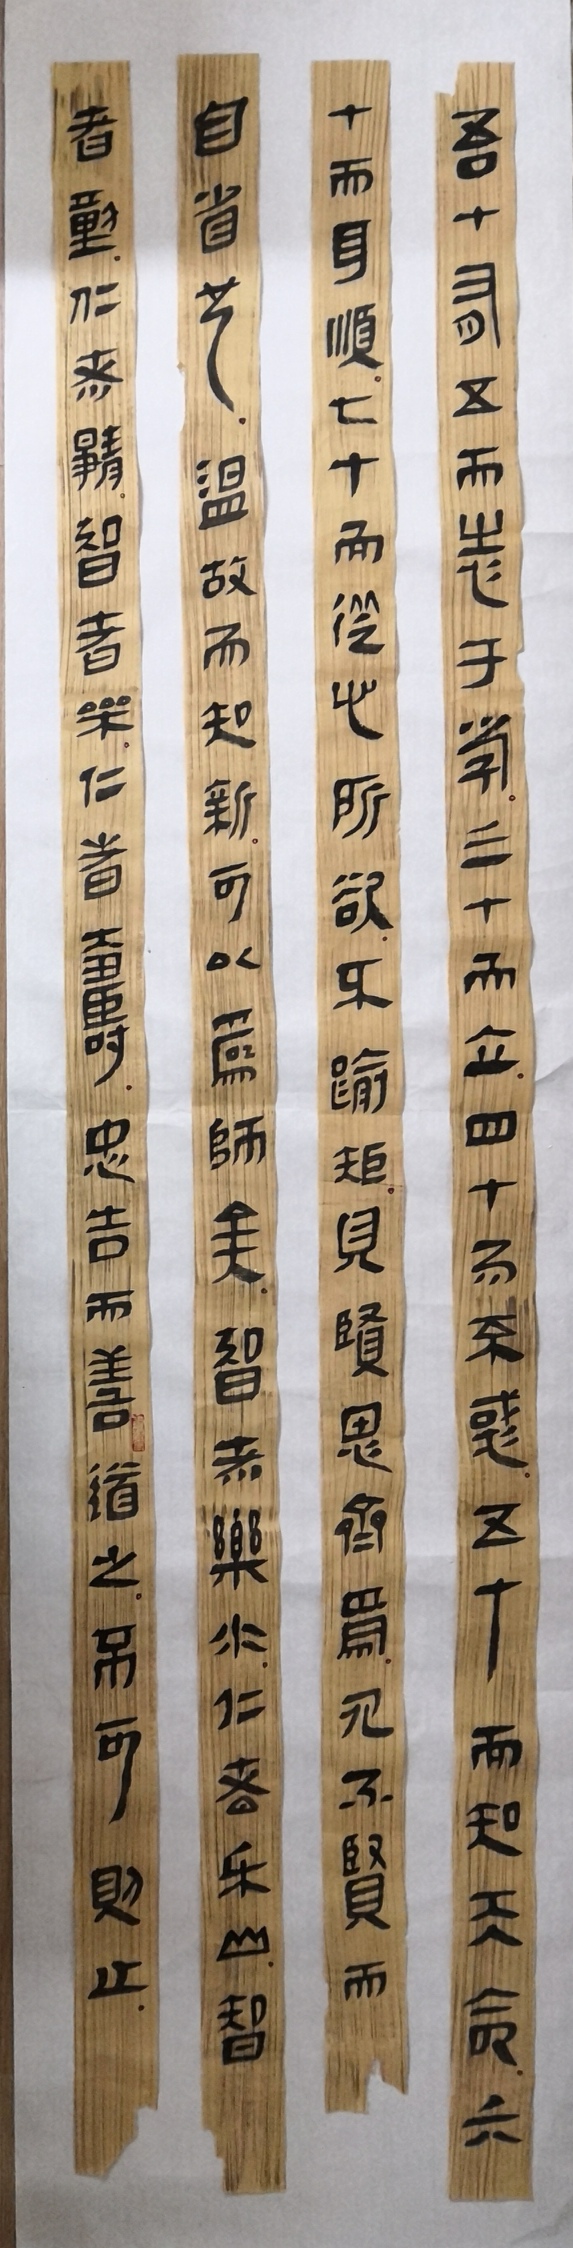 吾十有五而志于學三十而立四十而不惑五十而知天命六
十而耳順七十而從心所欲不踰矩見賢思齊焉見不賢而
自省也溫故而知新可以為師矣智者樂水仁者乐山智
者動仁者靜智者樂仁者壽忠告而善道之不可則止